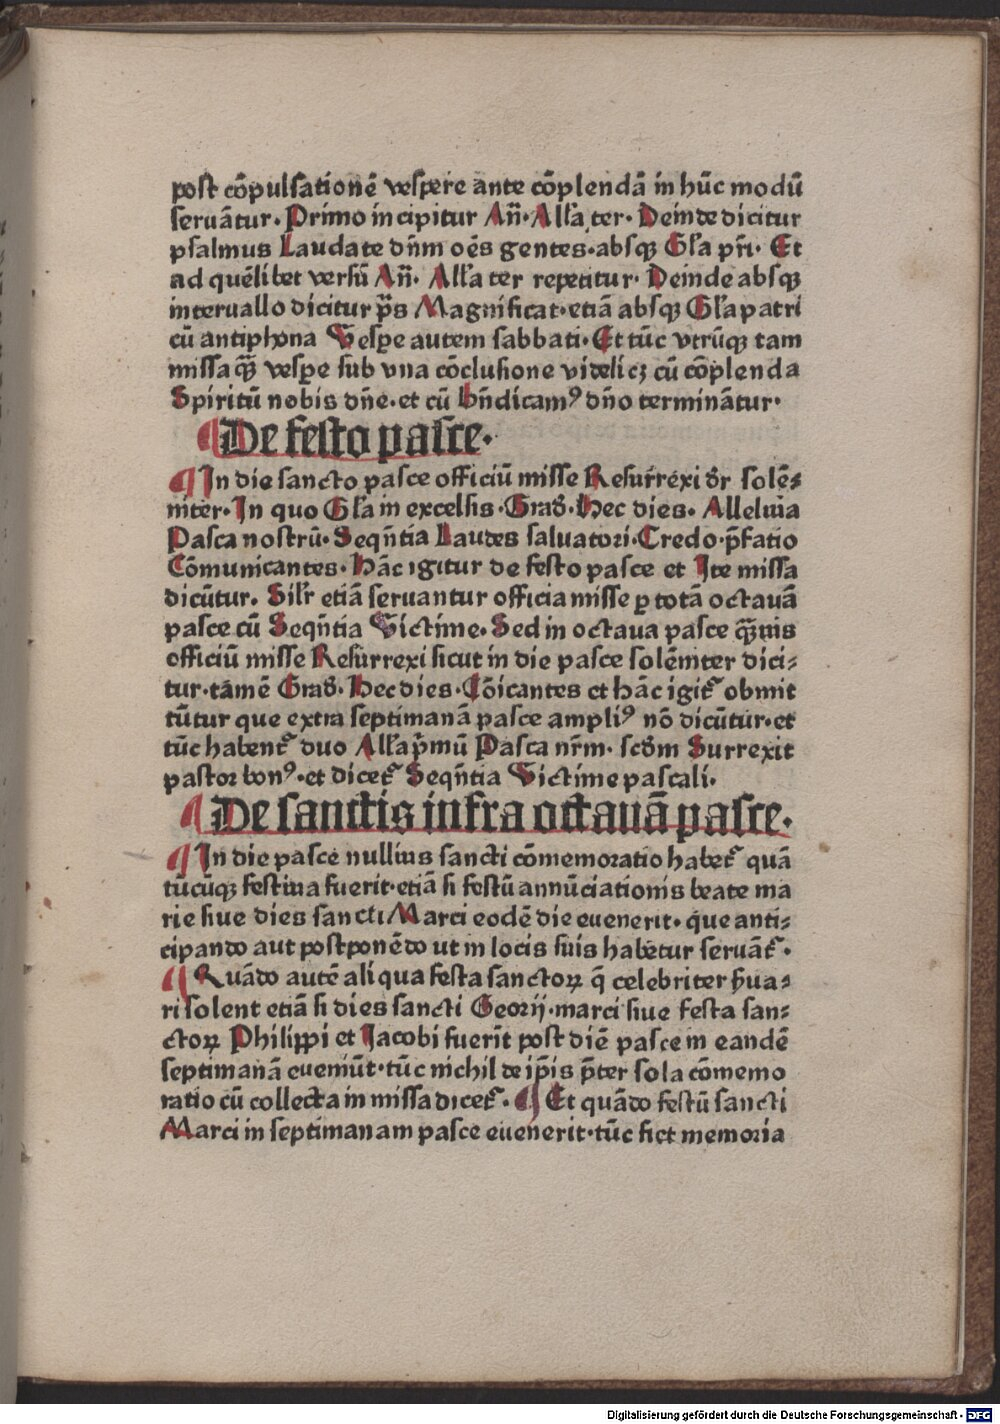 post cōpulsationē vespere ante cōplendā in hūc modū
seruātur. Primo incipitur An̄. All'a ter. Deinde dicitur
psalmus Laudate dn̄m oēs gentes. absqꝫ Gl'a pr̄i. Et
ad quēlibet versū An̄. All'a ter repetitur. Deinde absqꝫ
interuallo dicitur p̄s Magnificat. etiā absqꝫ Gl'a patri
cū antiphona Vespe autem sabbati. Et tūc vtrūqꝫ tam
missa qꝫ̄ vespe sub vna cōclusione videlicꝫ cū cōplenda
Spiritū nobis dn̄e. et cū Bn̄dicamꝰ dn̄o terminātur.
¶ De festo pasce.
¶ In die sancto pasce officiū misse Resurrexi d'r solē⸗
niter. In quo Gl'a in excelsis. Grad'. Hec dies. Alleluia
Pasca nostrū. Seqn̄tia Laudes saluatori. Credo. p̄fatio
Cōmunicantes. Hāc igitur de festo pasce et Ite missa
dicūtur. Sil'r etiā seruantur officia misse ꝑ totā octauā
pasce cū Seqn̄tia Victime. Sed in octaua pasce qꝫ̄uis
officiū misse Resurrexi sicut in die pasce solēniter dici⸗
tur. tamē Grad'. Hec dies. Cōicantes et hāc igit᷑ obmit
tūtur que extra septimanā pasce ampliꝰ nō dicūtur. et
tūc habent᷑ duo All'a p̄mū Pasca nr̄m. scd'm Surrexit
pastor bonꝰ. et dicet᷑ Seqn̄tia Victime pascali.
¶ De sanctis infra octauā pasce.
¶ In die pasce nullius sancti cōmemoratio habet᷑ quā
tūcūqꝫ festiua fuerit. etiā si festū annūciationis beate ma
rie siue dies sancti Marci eodē die evenerit. que anti⸗
cipando aut postponēdo ut in locis suis habetur seruāt᷑.
¶ Quādo autē aliqua festa sanctoꝝ q̄ celebriter s̄ua⸗
ri solent etiā si dies sancti Georij. marci siue festa san⸗
ctoꝝ Philippi et Jacobi fuerīt post diē pasce in eandē
septimanā eueniūt. tūc nichil de ip̄is p̄ter sola cōmemo
ratio cū collecta in missa dicet᷑. ¶ Et quādo festū sancti
Marci in septimanam pasce evenerit. tūc fiet memoria
Digitalisierung gefördert durch die Deutsche Forschungsgemeinschaft - DFG